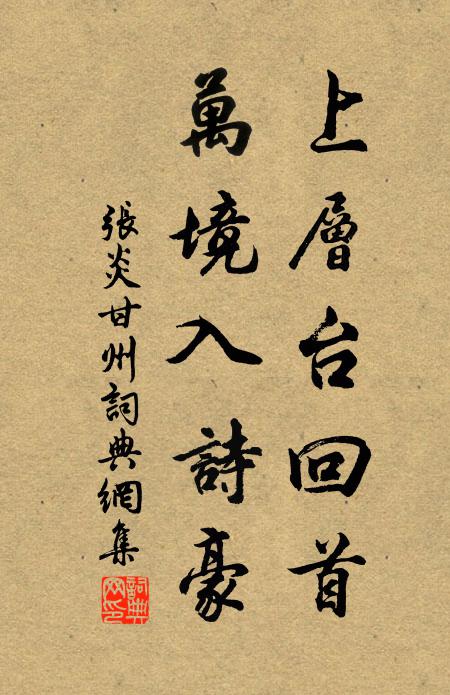 上層台回首
萬境入詩豪
張炎甘州詞典網集
詞典网印